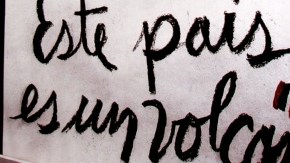 Este pais
es un volcá